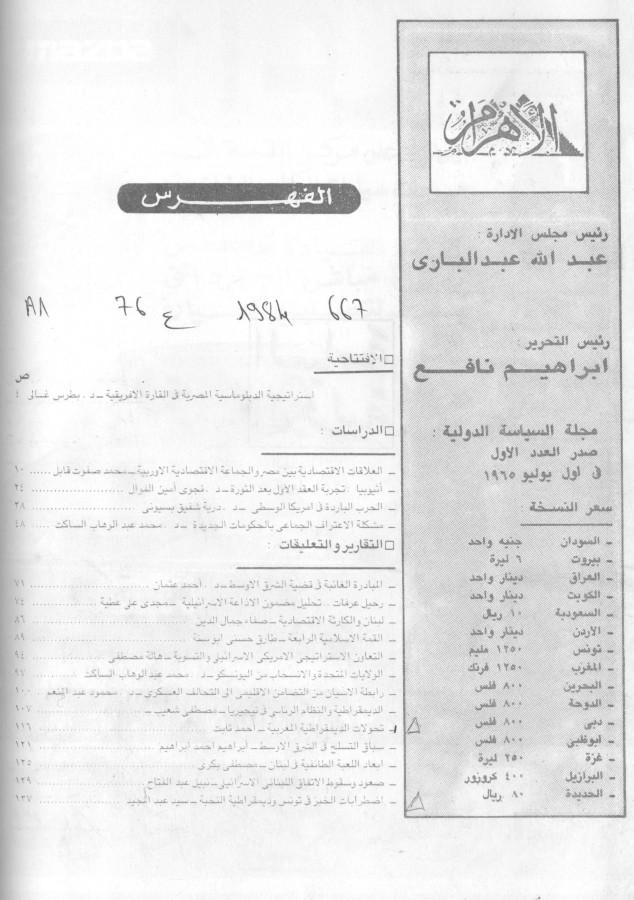 الأهرام
رئيس مجلس الادارة :
عبد الله عبدالبارى
رئيس التحرير :
ابراهيم نافع
مجلة السياسة الدولية :
صدر العدد الأول
فى أول يوليو ١٩٦٥
سعر النسخة :
ـ السودان جنيه واحد
ـ بيروت ٦ ليرة
ـ العراق دينار واحد
ـ الكويت دينار واحد
ـ السعودية ١٠ ريال
ـ الأردن دينار واحد
ـ تونس ١٢٥٠ مليم
ـ المغرب ١٢٥٠ فرنك
ـ البحرين ٨٠٠ فلس
ـ الدوحة ٨٠٠ فلس
ـ دبى ٨٠٠ فلس
ـ ابوظبى ٨٠٠ فلس
ـ غزة ٢٥٠ ليرة
ـ البرازيل ٤٠٠ كروزور
ـ الحديدة ٨٠ ريال
الفهرس
A1 76 ع 1984 667
□ الافتتاحية
ص
استراتيجية الدبلوماسية المصرية فى القارة الافريقية ـ د . بطرس غالى ٤
□ الدراسات :
ـ العلاقات الاقتصادية بين مصر والجماعة الاقتصادية الاوربية ـ محمد صفوت قابل ...... ١٠
ـ أثيوبيا : تجربة العقد الأول بعد الثورة ـ د . نجوى أمين الفوال ...... ٢٤
ـ الحرب الباردة فى امريكا الوسطى ـ د . درية شفيق بسيونى ...... ٣٨
ـ مشكلة الاعتراف الجماعى بالحكومات الجديدة ـ د . محمد عبد الوهاب الساكت ...... ٤٨
□ التقارير والتعليقات :
ـ المبادرة الغائبة فى قضية الشرق الاوسط ـ د . أحمد عثمان ...... ٧١
ـ رحيل عرفات . تحليل مضمون الاذاعة الاسرائيلية ـ مجدى على عطية ...... ٧٤
ـ لبنان والكارثة الاقتصادية ـ صفاء جمال الدين ...... ٨٦
ـ القمة الاسلامية الرابعة ـ طارق حسنى ابوسنة ...... ٨٩
ـ التعاون الاستراتيجى الامريكى الاسرائيلى والتسوية ـ هالة مصطفى ...... ٩٤
ـ الولايات المتحدة والانسحاب من اليونسكو ـ د . محمد عبد الوهاب الساكت ...... ٩٧
ـ رابطة الاسيان من التضامن الاقليمى الى التحالف العسكرى ـ د . محمود عبد المنعم ... ١٠٠
ـ الديمقراطية والنظام الرئاسى فى نيجيريا ـ مصطفى شعيب ـ ...... ١٠٧
ـ تحولات الديمقراطية المغربية ـ أحمد ثابت ...... ١١٦
ـ سباق التسلح فى الشرق الاوسط ـ ابراهيم احمد ابراهيم ...... ١٢١
ـ ابعاد اللعبة الطائفية فى لبنان ـ مصطفى بكرى ...... ١٢٥
ـ صعود وسقوط الاتفاق اللبنانى الاسرائيلى ـ نبيل عبد الفتاح ...... ١٢٩
ـ اضطرابات الخبز فى تونس وديمقراطية النخبة ـ سيد عبد المجيد ...... ١٣٧